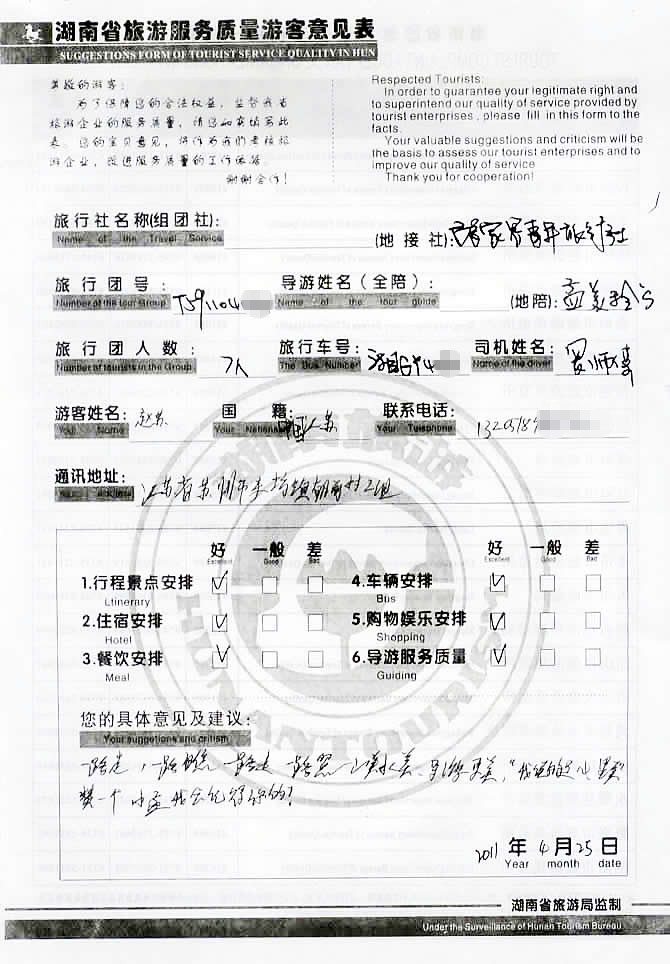 湖南省旅游服务质量游客意见表
SUGGESTIONS FORM OF TOURIST SERVICE QUALITY IN HUN
尊敬的游客:
为了保障您的合法权益,监督我省
旅游企业的服务质量,请您如实填写此
表。您的宝贵意见,将作为我们考核旅
游企业,改进服务质量的工作依据。
谢谢合作!
Respected Tourists:
In order to guarantee your legitimate right and
to superintend our quality of service provided by
tourist enterprises , please fill in this form to the
facts.
Your valuable suggestions and criticism will be
the basis to assess our tourist enterprises and to
improve our quality of service
Thank you for cooperation!
旅行社名称(组团社): (地接社): 张家界青年旅行社
Name of the Travel Service
旅行团号: TS91104 导游姓名(全陪): (地陪): 孟美玲
Number of the tour Group Name of the tour guide
旅行团人数: 7人 旅行车号: 司机姓名: 师傅
Number of tourists in the Group The Bus Number Name of the driver
游客姓名: 赵苏 国籍: 中国江苏 联系电话: 1320518
Your Name Your Nationality Your Telephone
通讯地址: 江苏省苏州市
Your address
好 一般 差 好 一般 差
Excellent Good Bad Excellent Good Bad
1.行程景点安排 4.车辆安排
Ltinerary Bus
2.住宿安排 5.购物娱乐安排
Hotel Shopping
3.餐饮安排 6.导游服务质量
Meal Guiding
您的具体意见及建议:
Your suggetions and critism
一路走 一路 一路 山美水美 导游更美,"
赞一个 小孟我会记得你的!
2011 年 4 月 25 日
Year month date
湖南省旅游局监制
Under the Surveillance of Hunan Tourism Bureau